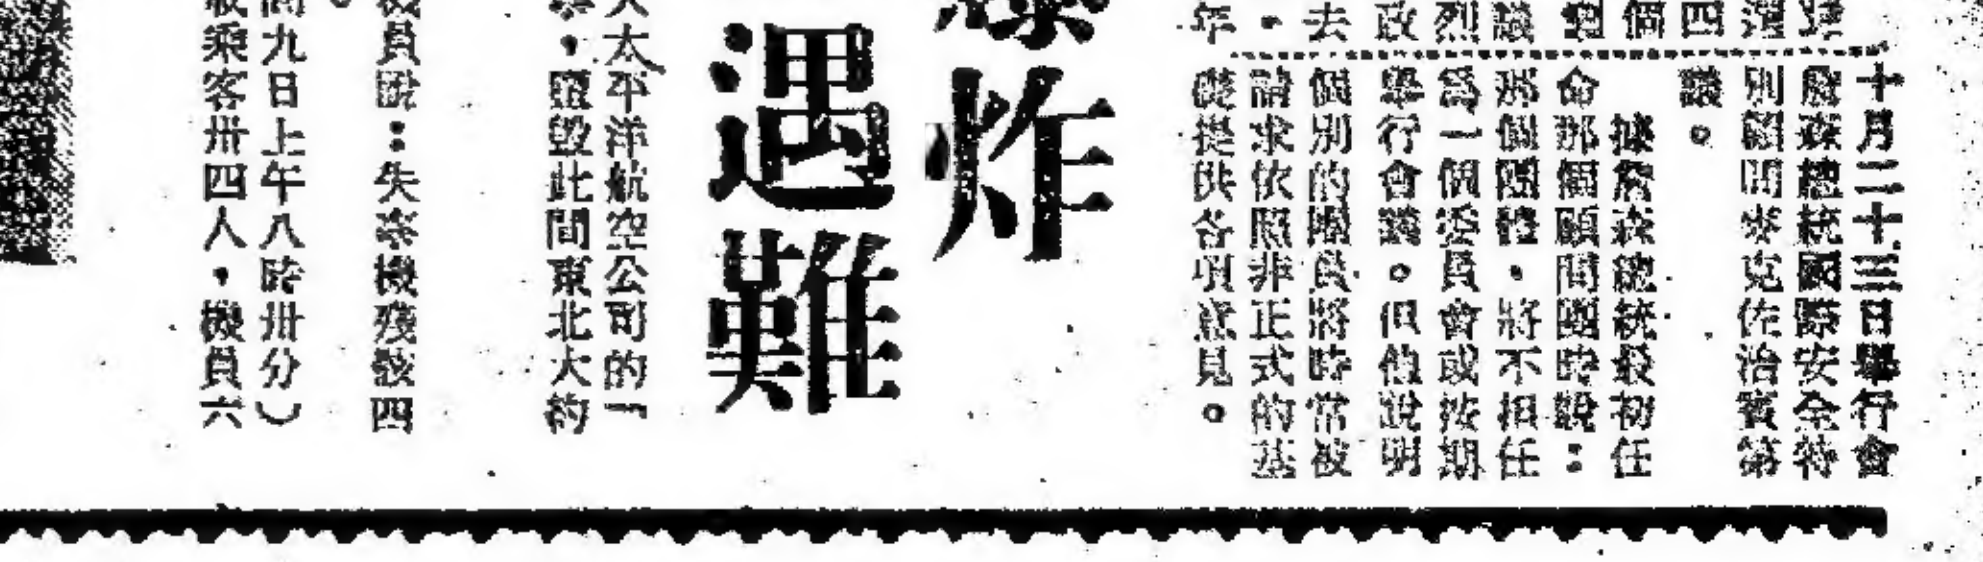 四
個
議
烈
政
去
年
十月二十三日舉行會
詹森總統國際安全特
別顧問麥克佐治賓第
議。
據詹森總統最初任
命那個顧問團時說：
那個團體，將不担任
爲一個委員會或按期
舉行會議。但他說明
個別的團員將時常被
請求依照非正式的基
礎提供各項意見。
炸
遇難
太平洋航空公司的一
，墮毀此間東北大約
員說：失事機殘骸四
間九日上午八時卅分）
乘客卅四人，機員六